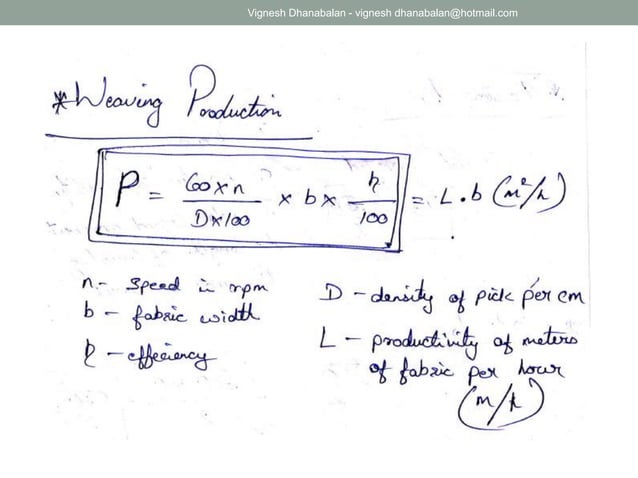 Vignesh Dhanabalan - vignesh dhanabalan@hotmail.com
*Weaving Production
P = 60 x n / D x 100 x b x η / 100 = L . b (m²/h)
n - Speed in rpm
b - fabric width
η - effeciency
D - density of pick per cm
L - productivity of meters
of fabric per hour
(m/h)